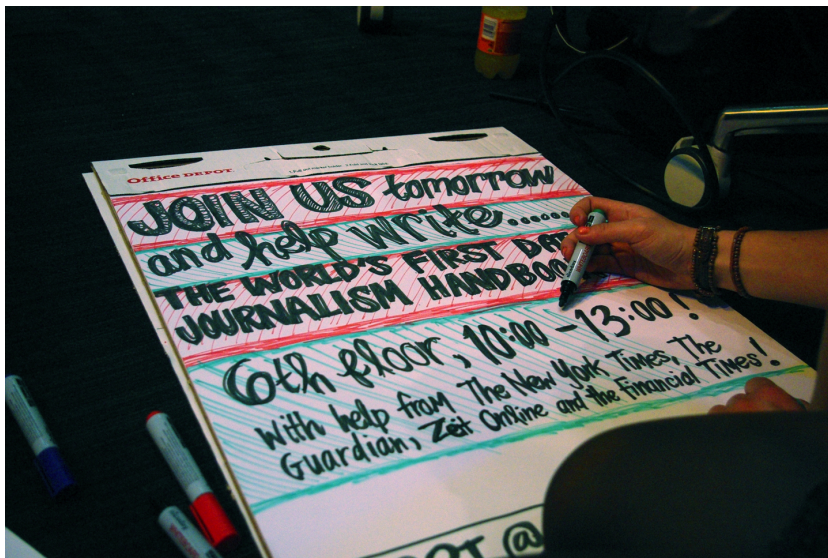 Office DEPOT
JOIN US tomorrow
and help write......
THE WORLD'S FIRST
JOURNALISM
6th floor, 10:00 - 13:00!
With help from The New York Times, The
Guardian, Zeit Online and the Financial Times!
@